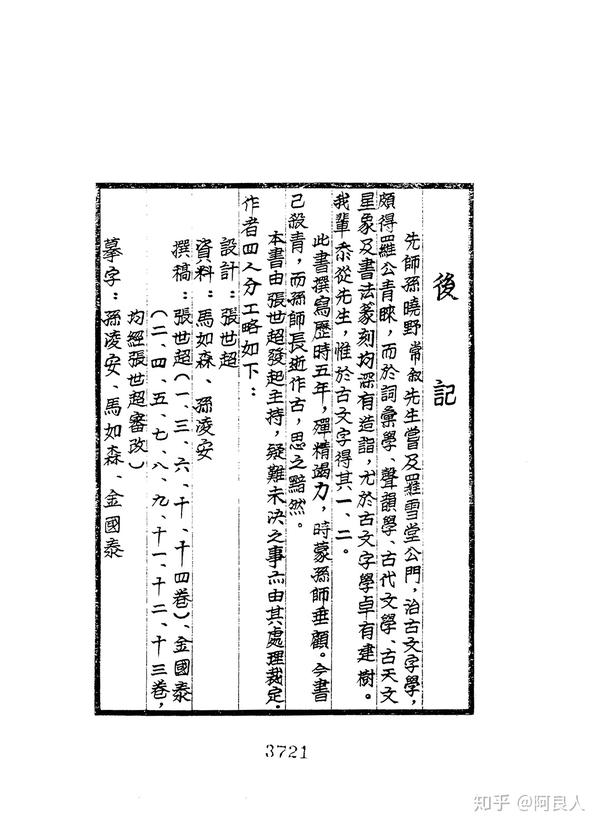 後記
先師孫曉野常叙先生嘗及羅雪堂公門，治古文字學，
頗得羅公青睞，而於詞彙學、聲韻學、古代文學、古天文
星象及書法篆刻均深有造詣，尤於古文字學卓有建樹。
我輩忝從先生，惟於古文字得其一、二。
此書撰寫歷時五年，殫精竭力，時蒙孫師垂顧。今書
已殺青，而孫師長逝作古，思之黯然。
本書由張世超發起主持，疑難未決之事亦由其處理裁定。
作者四人分工略如下：
設計：張世超
資料：馬如森、孫凌安
撰稿：張世超（一、三、六、十、十四卷）、金國泰
（二、四、五、七、八、九、十一、十二、十三卷，
均經張世超審改）
摹字：孫凌安、馬如森、金國泰
3721
知乎 @阿良人